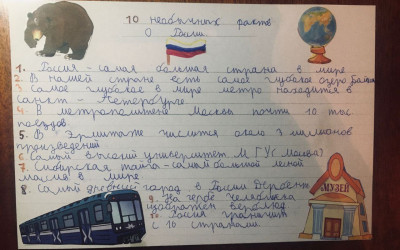 10 необычных фактов
О России
1. Россия - самая большая страна в мире
2. В нашей стране есть самое глубокое озеро Байкал
3. Самое глубокое в мире метро находится в
Санкт - Петербурге
4. В метрополитене Москвы почти 10 тыс.
поездов
5. В Эрмитаже числится около 3 миллионов
произведений
6. Самый высокий университет МГУ (Москва)
7. Сибирская тайга - самый большой лесной
массив в мире
8. Самый древний город в России Дербент
9. На гербе Челябинска
изображен верблюд
10. Россия граничит
с 10 странами
МУЗЕЙ